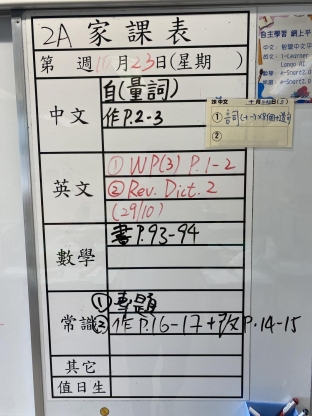 2A 家課表
第 週 10月23日(星期 )
中文
自(量詞)
作P.2-3
英文
① WP(3) P.1-2
② Rev. Dict. 2
(29/10)
數學
書P.93-94
常識
① 專題
② 作P.16-17+改P.14-15
其它
值日生
自主學習 網上平
中文
①
②